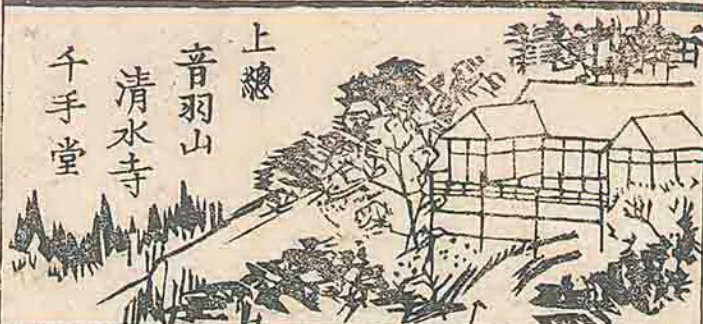 上總
音羽山
清水寺
千手堂